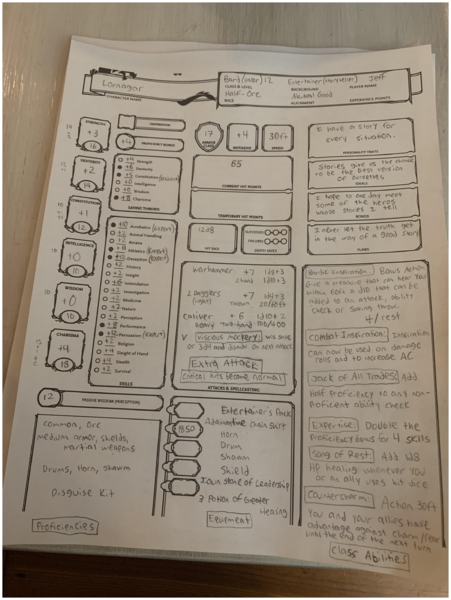 Lornagar
CHARACTER NAME
Bard (Valor) 12
Entertainer (storyteller)
Jeff
CLASS & LEVEL
BACKGROUND
PLAYER NAME
Half-Orc
Neutral Good
RACE
ALIGNMENT
EXPERIENCE POINTS
STRENGTH
+3
16
DEXTERITY
+2
14
CONSTITUTION
+1
12
INTELLIGENCE
+0
10
WISDOM
+0
10
CHARISMA
+4
18
INSPIRATION
+4
PROFICIENCY BONUS
Strength
Dexterity
Constitution
Intelligence
Wisdom
Charisma
SAVING THROWS
Acrobatics (Expert)
Animal Handling
Arcana
Athletics (Expert)
Deception (Expert)
History
Insight
Intimidation
Investigation
Medicine
Nature
Perception
Performance
Persuasion (Expert)
Religion
Sleight of Hand
Stealth
Survival
SKILLS
12
PASSIVE WISDOM (PERCEPTION)
Common, Orc
Medium armor, shields,
martial weapons
Drums, Horn, Shawm
Disguise Kit
Proficiencies
17
ARMOR CLASS
+4
INITIATIVE
30ft
SPEED
65
CURRENT HIT POINTS
TEMPORARY HIT POINTS
12d8
HIT DICE
SUCCESSES
FAILURES
DEATH SAVES
Warhammer +7 1d8+3
2 Daggers +7 1d4+3
Thrown 20/60ft
+6 1d10+2
Viscious Mockery
or 3d4 and disadv. on next attack
Extra Attack
Critical hits become normal
ATTACKS & SPELLCASTING
1850
Entertainer's Pack
Adamantine Chain Shirt
Horn
Drum
Shawm
Shield
Ioun Stone of Leadership
2 Potion of Greater
Healing
Equipment
I have a story for
every situation.
PERSONALITY TRAITS
Stories give us the chance
to be the best version
of ourselves
IDEALS
I hope to one day meet
some of the heros
whose stories I tell
BONDS
I never let the truth get
in the way of a good story
FLAWS
Bardic Inspiration: Bonus Action
Give a creature that can hear you
within 60ft a d10 that can be
added to an attack, ability
check or saving throw.
4/rest
Combat Inspiration: Inspiration
can now be used on damage
rolls and to increase AC
Jack of All Trades: Add
half proficiency to any non-
proficient ability check
Expertise: Double the
proficiency bonus for 4 skills
Song of Rest: Add d8
HP healing whenever you
or an ally uses hit dice
Countercharm: Action 30ft
You and your allies have
advantage against charm/fear
until the end of the next turn
Class Abilities